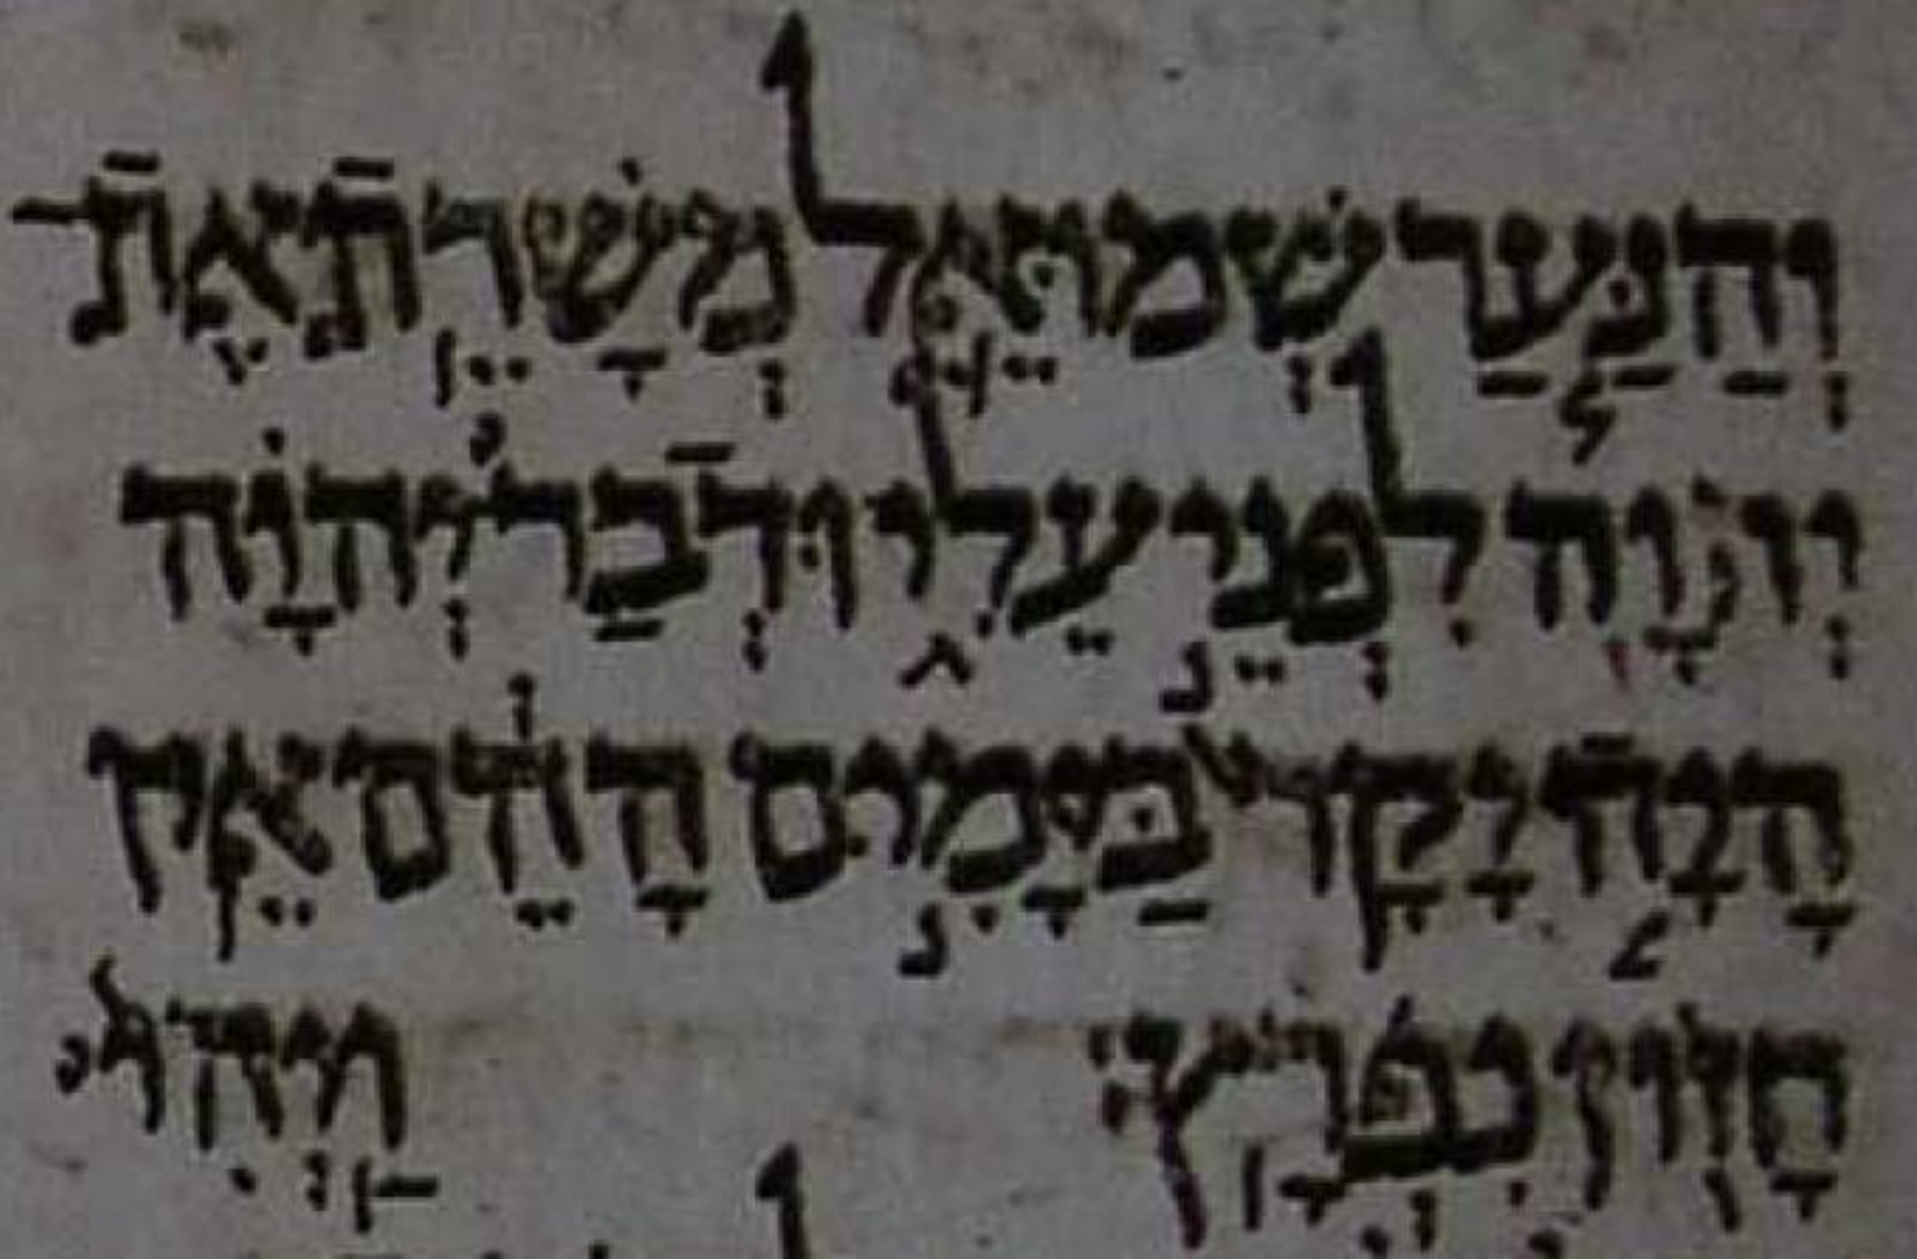 וְהַנַּ֧עַר שְׁמוּאֵ֛ל מְשָׁרֵ֥ת אֶת־
יְהוָ֖ה לִפְנֵ֣י עֵלִ֑י וּדְבַר־יְהוָ֗ה
הָיָ֤ה יָקָר֙ בַּיָּמִ֣ים הָהֵ֔ם אֵ֥ין
חָז֖וֹן נִפְרָֽץ׃ וַֽיְהִי֙